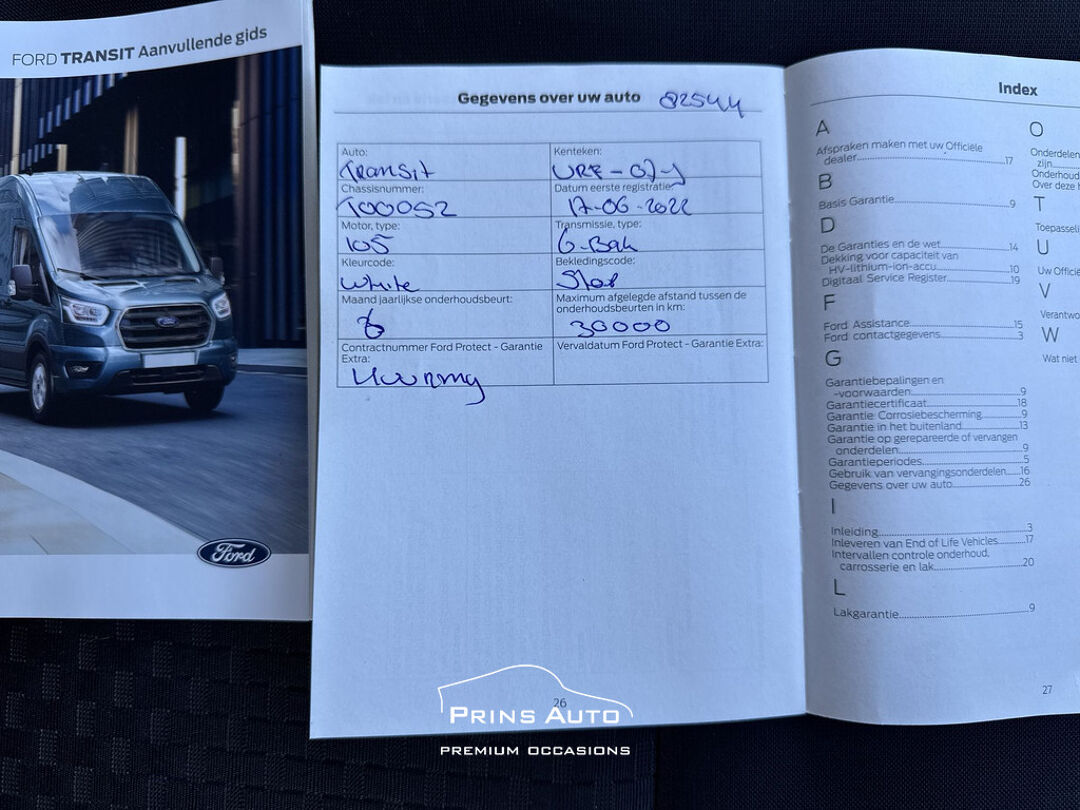 FORD TRANSIT Aanvullende gids
Ford
Gegevens over uw auto 82544
Auto:
Transit
Kenteken:
VRF-07-J
Chassisnummer:
T00052
Datum eerste registratie
17-06-2022
Motor, type:
105
Transmissie, type:
6-Bak
Kleurcode:
White
Bekledingscode:
Stof
Maand jaarlijkse onderhoudsbeurt:
6
Maximum afgelegde afstand tussen de
onderhoudsbeurten in km:
30000
Contractnummer Ford Protect - Garantie
Extra:
Vervaldatum Ford Protect - Garantie Extra:
26
Index
A
Afspraken maken met uw Officiële
dealer 17
B
Basis Garantie 9
D
De Garanties en de wet 14
Dekking voor capaciteit van
HV-lithium-ion-accu 10
Digitaal Service Register 19
F
Ford Assistance 15
Ford contactgegevens 3
G
Garantiebepalingen en
-voorwaarden 9
Garantiecertificaat 18
Garantie: Corrosiebescherming 9
Garantie in het buitenland 13
Garantie op gerepareerde of vervangen
onderdelen 9
Garantieperiodes 5
Gebruik van vervangingsonderdelen 16
Gegevens over uw auto 26
I
Inleiding 3
Inleveren van End of Life Vehicles 17
Intervallen controle onderhoud,
carrosserie en lak 20
L
Lakgarantie 9
O
Onderdelen
zijn
Onderhoud
Over deze
T
U
Uw Officië
V
W
Wat niet
27
PRINS AUTO
PREMIUM OCCASIONS